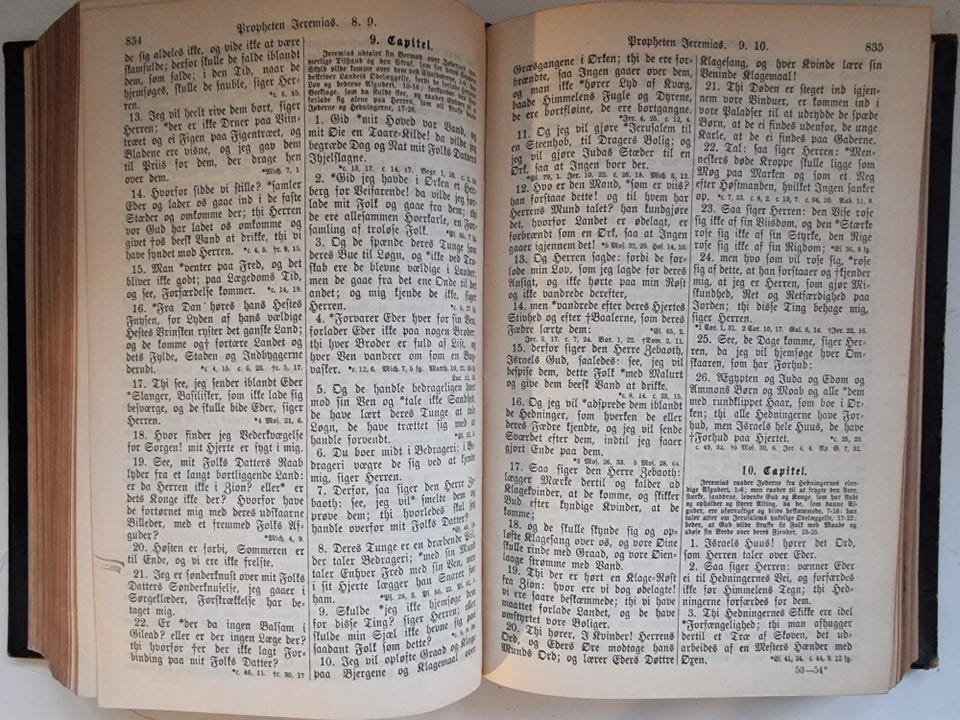 834
Propheten Jeremias. 8. 9.
de sig aldeles ikke, og vide ikke at være
skamfulde; derfor skulle de falde iblandt
dem, som falde; i den Tid, naar de
hjemsøges, skulle de snuble, siger Her-
ren. *c. 6, 15.
13. Jeg vil heelt rive dem bort, siger
Herren; *der er ikke Druer paa Viin-
træet og ei Figen paa Figentræet, og
Bladene ere visne, og jeg gav dem
til Priis for dem, der drage hen
over dem. *Mich. 7, 1
14. Hvorfor sidde vi stille? *samler
Eder og lader os gaae ind i de faste
Stæder og omkomme der; thi Herren
vor Gud har ladet os omkomme og
givet †os beesk Vand at drikke, thi vi
have syndet mod Herren. *c. 4, 5. †c. 9, 15.
15. Man *venter paa Fred, og det
bliver ikke godt; paa Lægedoms Tid,
og see, Forfærdelse kommer. *c. 14, 19.
16. *Fra Dan høres hans Hestes
Fnysen, for Lyden af hans vældige
Hestes Vrinsken ryster det ganske Land;
og de komme og† fortære Landet og
dets Fylde, Staden og Indbyggerne
derudi. *c. 4, 15. c. 6, 23. †c. 5, 17.
17. Thi see, jeg sender iblandt Eder
*Slanger, Basilisker, som ikke lade sig
besværge, og de skulle bide Eder, siger
Herren. *4 Mos. 21, 6.
18. Hvor finder jeg Vederkvægelse
for Sorgen! mit Hjerte er sygt i mig.
19. See, mit Folks Datters Raab
lyder fra et langt bortliggende Land:
er da Herren ikke i Zion? eller* er
dets Konge ikke der? Hvorfor have
de fortørnet mig med deres udskaarne
Billeder, med et fremmed Folks Af-
guder? *Mich. 4, 9.
20. Høsten er forbi, Sommeren er
til Ende, og vi ere ikke frelste.
21. Jeg er sønderknust over mit Folks
Datters Sønderknuselse, jeg gaaer i
Sørgeklæder, Forskrækkelse har be-
taget mig.
22. Er *der da ingen Balsam i
Gilead? eller er der ingen Læge der?
thi hvorfor †er der ikke lagt For-
binding paa mit Folks Datter?
*c. 46, 11. †c. 30, 17
9. Capitel.
Jeremias udtaler sin Veemod over Jødernes
merlige Tilstand og den Straf, som for deres
Skyld vilde komme over dem ved Chaldæerne,
beskriver Landets Ødelæggelse,
Lov og dederne Afguderi, 10-16;
Veeklage, som da skulde
forlade sig alene paa Herren, som
Jøderne og Hedningerne, 17-26.
1. Gid *mit Hoved var Vand, og
mit Øie en Taare-Kilde! da vilde jeg
begræde Dag og Nat mit Folks Datters
Ihjelslagne.
*c. 13, 17. c. 14, 17. Begr. 1, 16.
2. *Gid jeg havde i Ørken et Her-
berg for Veifarende! da vilde jeg for-
lade mit Folk og gaae fra dem; thi
de ere allesammen Hoerkarle, en For-
samling af troløse Folk.
3. Og de spænde deres Tunge som
deres Bue til Løgn, og *ikke ved Tro-
skab ere de blevne vældige i Landet;
men de gaae fra det ene Onde til det
andet; og mig kjende de ikke, siger
Herren.
4. *Forvarer Eder hver for sin Ven,
forlader Eder ikke paa nogen Broder;
thi hver Broder er fuld af List, og
hver Ven vandrer om som en Bag-
vasker. *c. 12, 6. Mich. 7, 5 fg. Matth. 10,
Luc. 12,
5. Og de handle bedrageligen hver
mod sin Ven og *tale ikke Sandhed,
de have lært deres Tunge at tale
Løgn, de have trættet sig med at
handle forvendt.
6. Du boer midt i Bedrageri; i Be-
drageri vægre de sig ved at kjende
mig, siger Herren.
7. Derfor, saa siger den Herre Ze-
baoth: see, jeg vil *smelte dem og
prøve dem; thi hvorledes skal jeg
handle overfor mit Folks Datter?
8. Deres Tunge er en dræbende Piil,
der taler Bedrageri; *med sin Mund
taler Enhver Fred med sin Ven, men
i sit Hjerte lægger han Snarer for
ham. *Ps. 28, 3. Ps. 55, 22.
9. Skulde *jeg ikke hjemsøge dem
for disse Ting? siger Herren; eller
skulde min Sjæl ikke hevne sig paa
saadant Folk som dette?
10. Jeg vil opløfte Graad og Klage
paa Bjergene og Klagemaal over
Propheten Jeremias. 9. 10.
835
Græsgangene i Ørken; thi de ere for-
brændte, saa Ingen gaaer over dem,
og man ikke *hører Lyd af Kvæg,
baade Himmelens Fugle og Dyrene,
de ere bortfløine, de ere bortgangne.
*Jer. 4, 25. c. 12, 4.
11. Og jeg vil gjøre *Jerusalem til
en Steenhob, til Dragers Bolig; og
jeg vil gjøre Judas Stæder til en
Ørk, saa at Ingen boer der.
*Ps. 79, 1. Jer. 10, 22. c. 26, 18. Mich. 3, 12.
12. Hvo er den Mand, *som er viis?
han forstaae dette! og til hvem har
Herrens Mund talet? han kundgjøre
det, hvorfor Landet er ødelagt, er
forbrændt som en Ørk, saa at Ingen
gaaer igjennem det! *5 Mos. 32, 29. Hos. 14, 10.
13. Og Herren sagde: fordi de for-
lode min Lov, som jeg lagde for deres
Ansigt, og ikke hørte paa min Røst
og ikke vandrede derefter,
14. men *vandrede efter deres Hjertes
Stivhed og efter †Baalerne, som deres
Fædre lærte dem: *Es. 65, 2.
Jer. 3, 17. c. 7, 24. Bar. 1, 22. †Dom. 2, 11.
15. derfor siger den Herre Zebaoth,
Israels Gud, saaledes: see, jeg vil
bespise dem, dette Folk *med Malurt
og give dem beesk Vand at drikke.
*c. 8, 14. c. 23, 15.
16. Og jeg vil *adsprede dem iblandt
de Hedninger, som hverken de eller
deres Fædre kjendte, og jeg vil sende
Sværdet efter dem, indtil jeg faaer
gjort Ende paa dem.
*3 Mos. 26, 33. 5 Mos. 28, 64.
17. Saa siger den Herre Zebaoth:
lægger Mærke dertil og kalder ad
Klagekvinder, at de komme, og skikker
Bud efter kyndige Kvinder, at de
komme;
18. og de skulle skynde sig og op-
løfte Klagesang over os, og vore Øine
skulle rinde med Graad, og vore Øien-
laage strømme med Vand.
19. Thi der er hørt en Klage-Røst
fra Zion: hvor ere vi dog ødelagte!
vi ere saare beskæmmede; thi vi have
maattet forlade Landet, og de have
omstyrtet vore Boliger.
20. Thi hører, I Kvinder! Herrens
Ord, og Eders Øre modtage hans
Munds Ord; og lærer Eders Døttre
Klagesang, og hver Kvinde lære sin
Veninde Klagemaal!
21. Thi Døden er steget ind igjen-
nem vore Vinduer, er kommen ind i
vore Paladser til at udrydde de spæde
Børn, at de ei findes udenfor, de unge
Karle, at de ei findes paa Gaderne.
22. Tal: saa siger Herren: *Men-
neskers døde Kroppe skulle ligge som
Møg paa Marken og som et Neg
efter Høstmanden, hvilket Ingen sanker
op. *c. 7, 33. c. 8, 2. c. 19, 7. c. 34, 20. Aab. 11, 8.
23. Saa siger Herren: den Vise rose
sig ikke af sin Viisdom, og den *Stærke
rose sig ikke af sin Styrke, den Rige
rose sig ikke af sin Rigdom; *Es. 36, 8 fg.
24. men hvo som vil rose sig, *rose
sig af dette, at han forstaaer og †kjender
mig, at jeg er Herren, som gjør Mi-
skundhed, Ret og Retfærdighed paa
Jorden; thi disse Ting behage mig,
siger Herren.
*1 Cor. 1, 31. 2 Cor. 10, 17. Gal. 6, 14 †Jer. 22, 16.
25. See, de Dage komme, siger Her-
ren, da jeg vil hjemsøge hver Om-
skaaren, som har Forhud:
26. Ægypten og Juda og Edom og
Ammons Børn og Moab og alle *dem
med rundklippet Haar, som boe i Ør-
ken; thi alle Hedningerne have For-
hud, men Israels hele Huus, de have
†Forhud paa Hjertet. *c. 25, 23.
c. 49, 32 †5 Mos. 30, 6. Jer. 4, 4. Ap. G. 7, 51.
10. Capitel.
Jeremias raader Jøderne fra Hedningernes elen-
dige Afguderi, 1-6; men raader til at frygte den store,
stærke, sanddrue, levende Gud og Konge, som har skabt
og opholder og styrer Alting, da de, som danne Af-
guder, ere ufornuftige og blive beskæmmede, 7-16; han
taler atter om Jerusalems ynkelige Ødelæggelse, 17-22;
beder, at Gud vilde straffe sit Folk med Maade og
udøse sin Vrede over deres Fjender, 23-25.
1. Israels Huus! hører det Ord,
som Herren taler over Eder.
2. Saa siger Herren: vænner Eder
ei til Hedningernes Vei, og forfærdes
ikke for Himmelens Tegn; thi Hed-
ningerne forfærdes for dem.
3. Thi Hedningernes Skikke ere idel
*Forfængelighed; thi man afhugger
dertil et Træ af Skoven, det ud-
arbeides af en Mesters Hænder med
Øxen. *Es. 41, 24. c. 44, 9. 12 fg.
53—54*